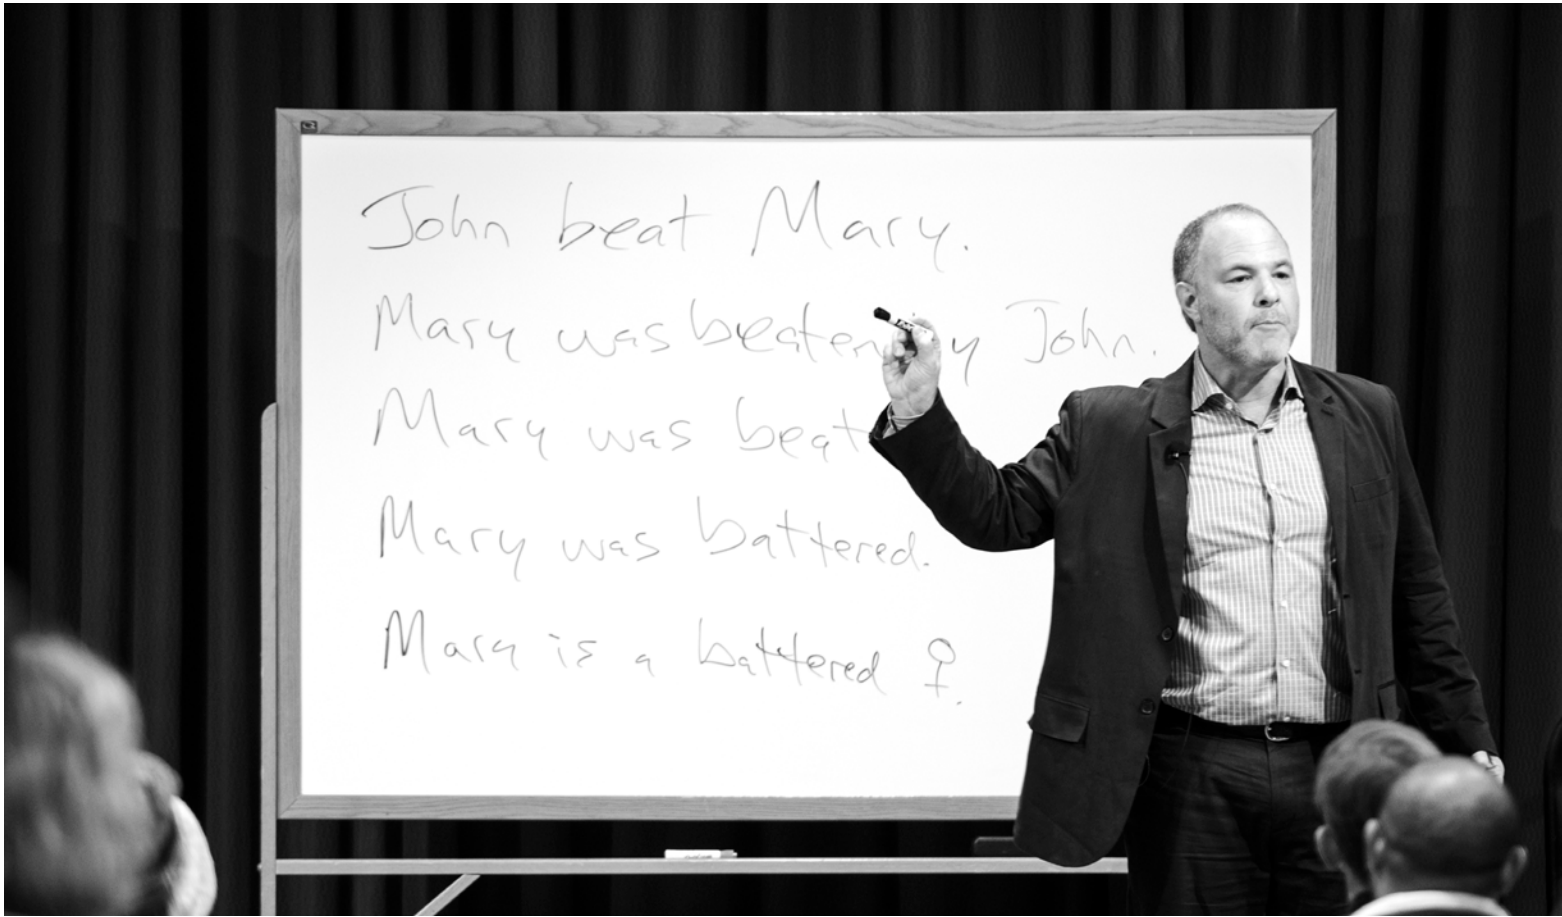 John beat Mary.
Mary was beaten by John.
Mary was beat
Mary was battered.
Mary is a battered ♀.